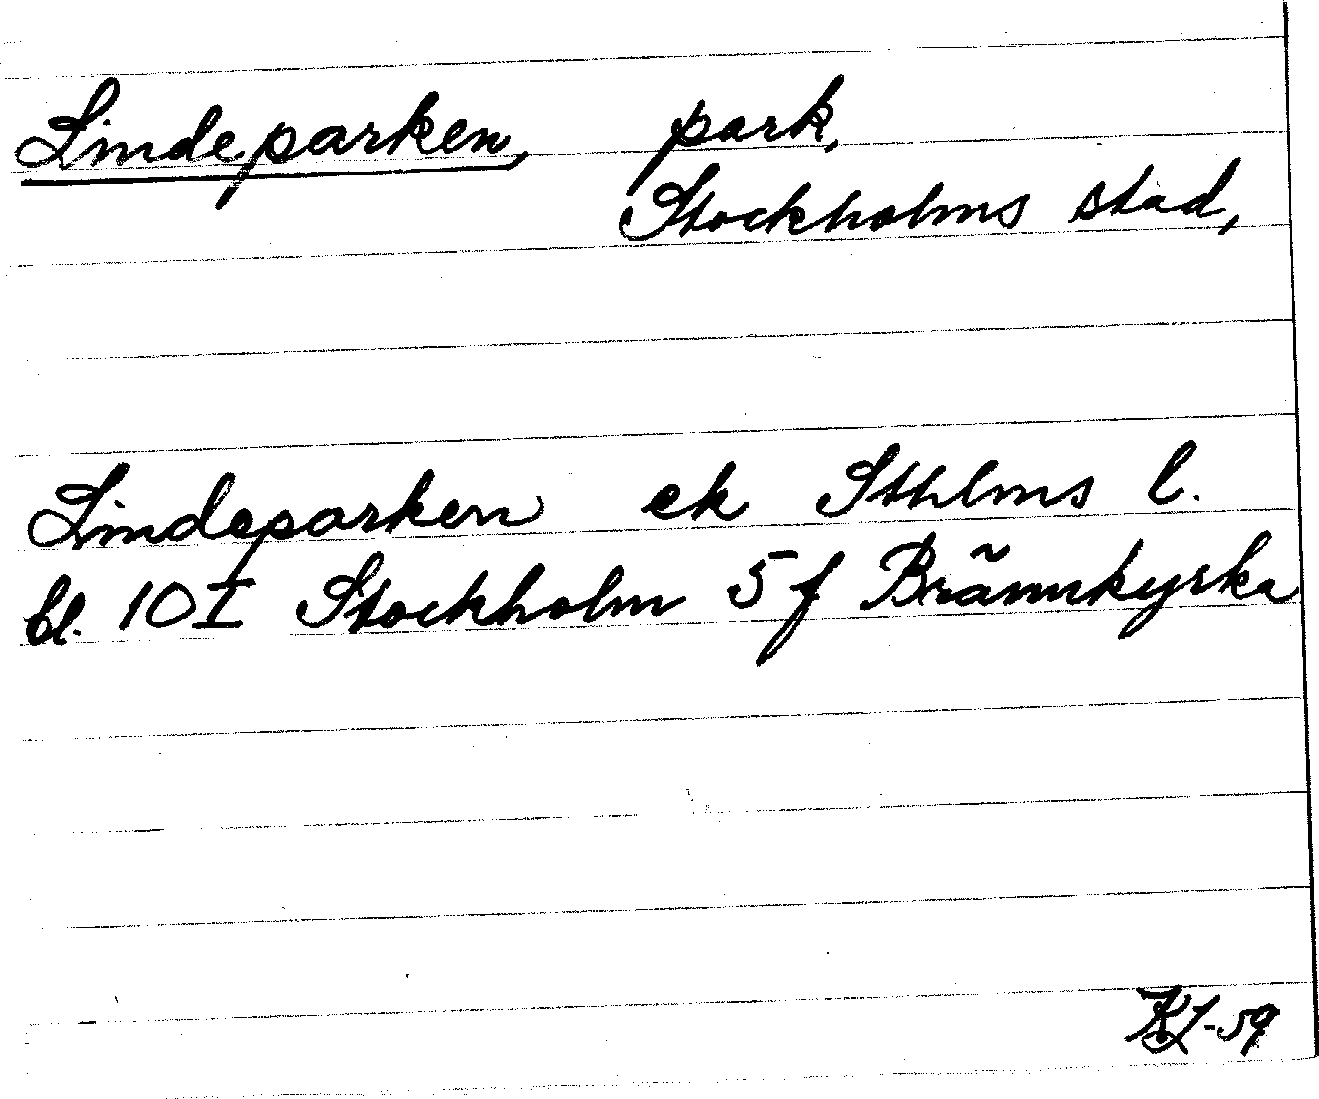 Lindeparken, park,
Stockholms stad,
Lindeparken ek Sthlms l.
bl. 10 I Stockholm 5 f Brännkyrka
KL-59